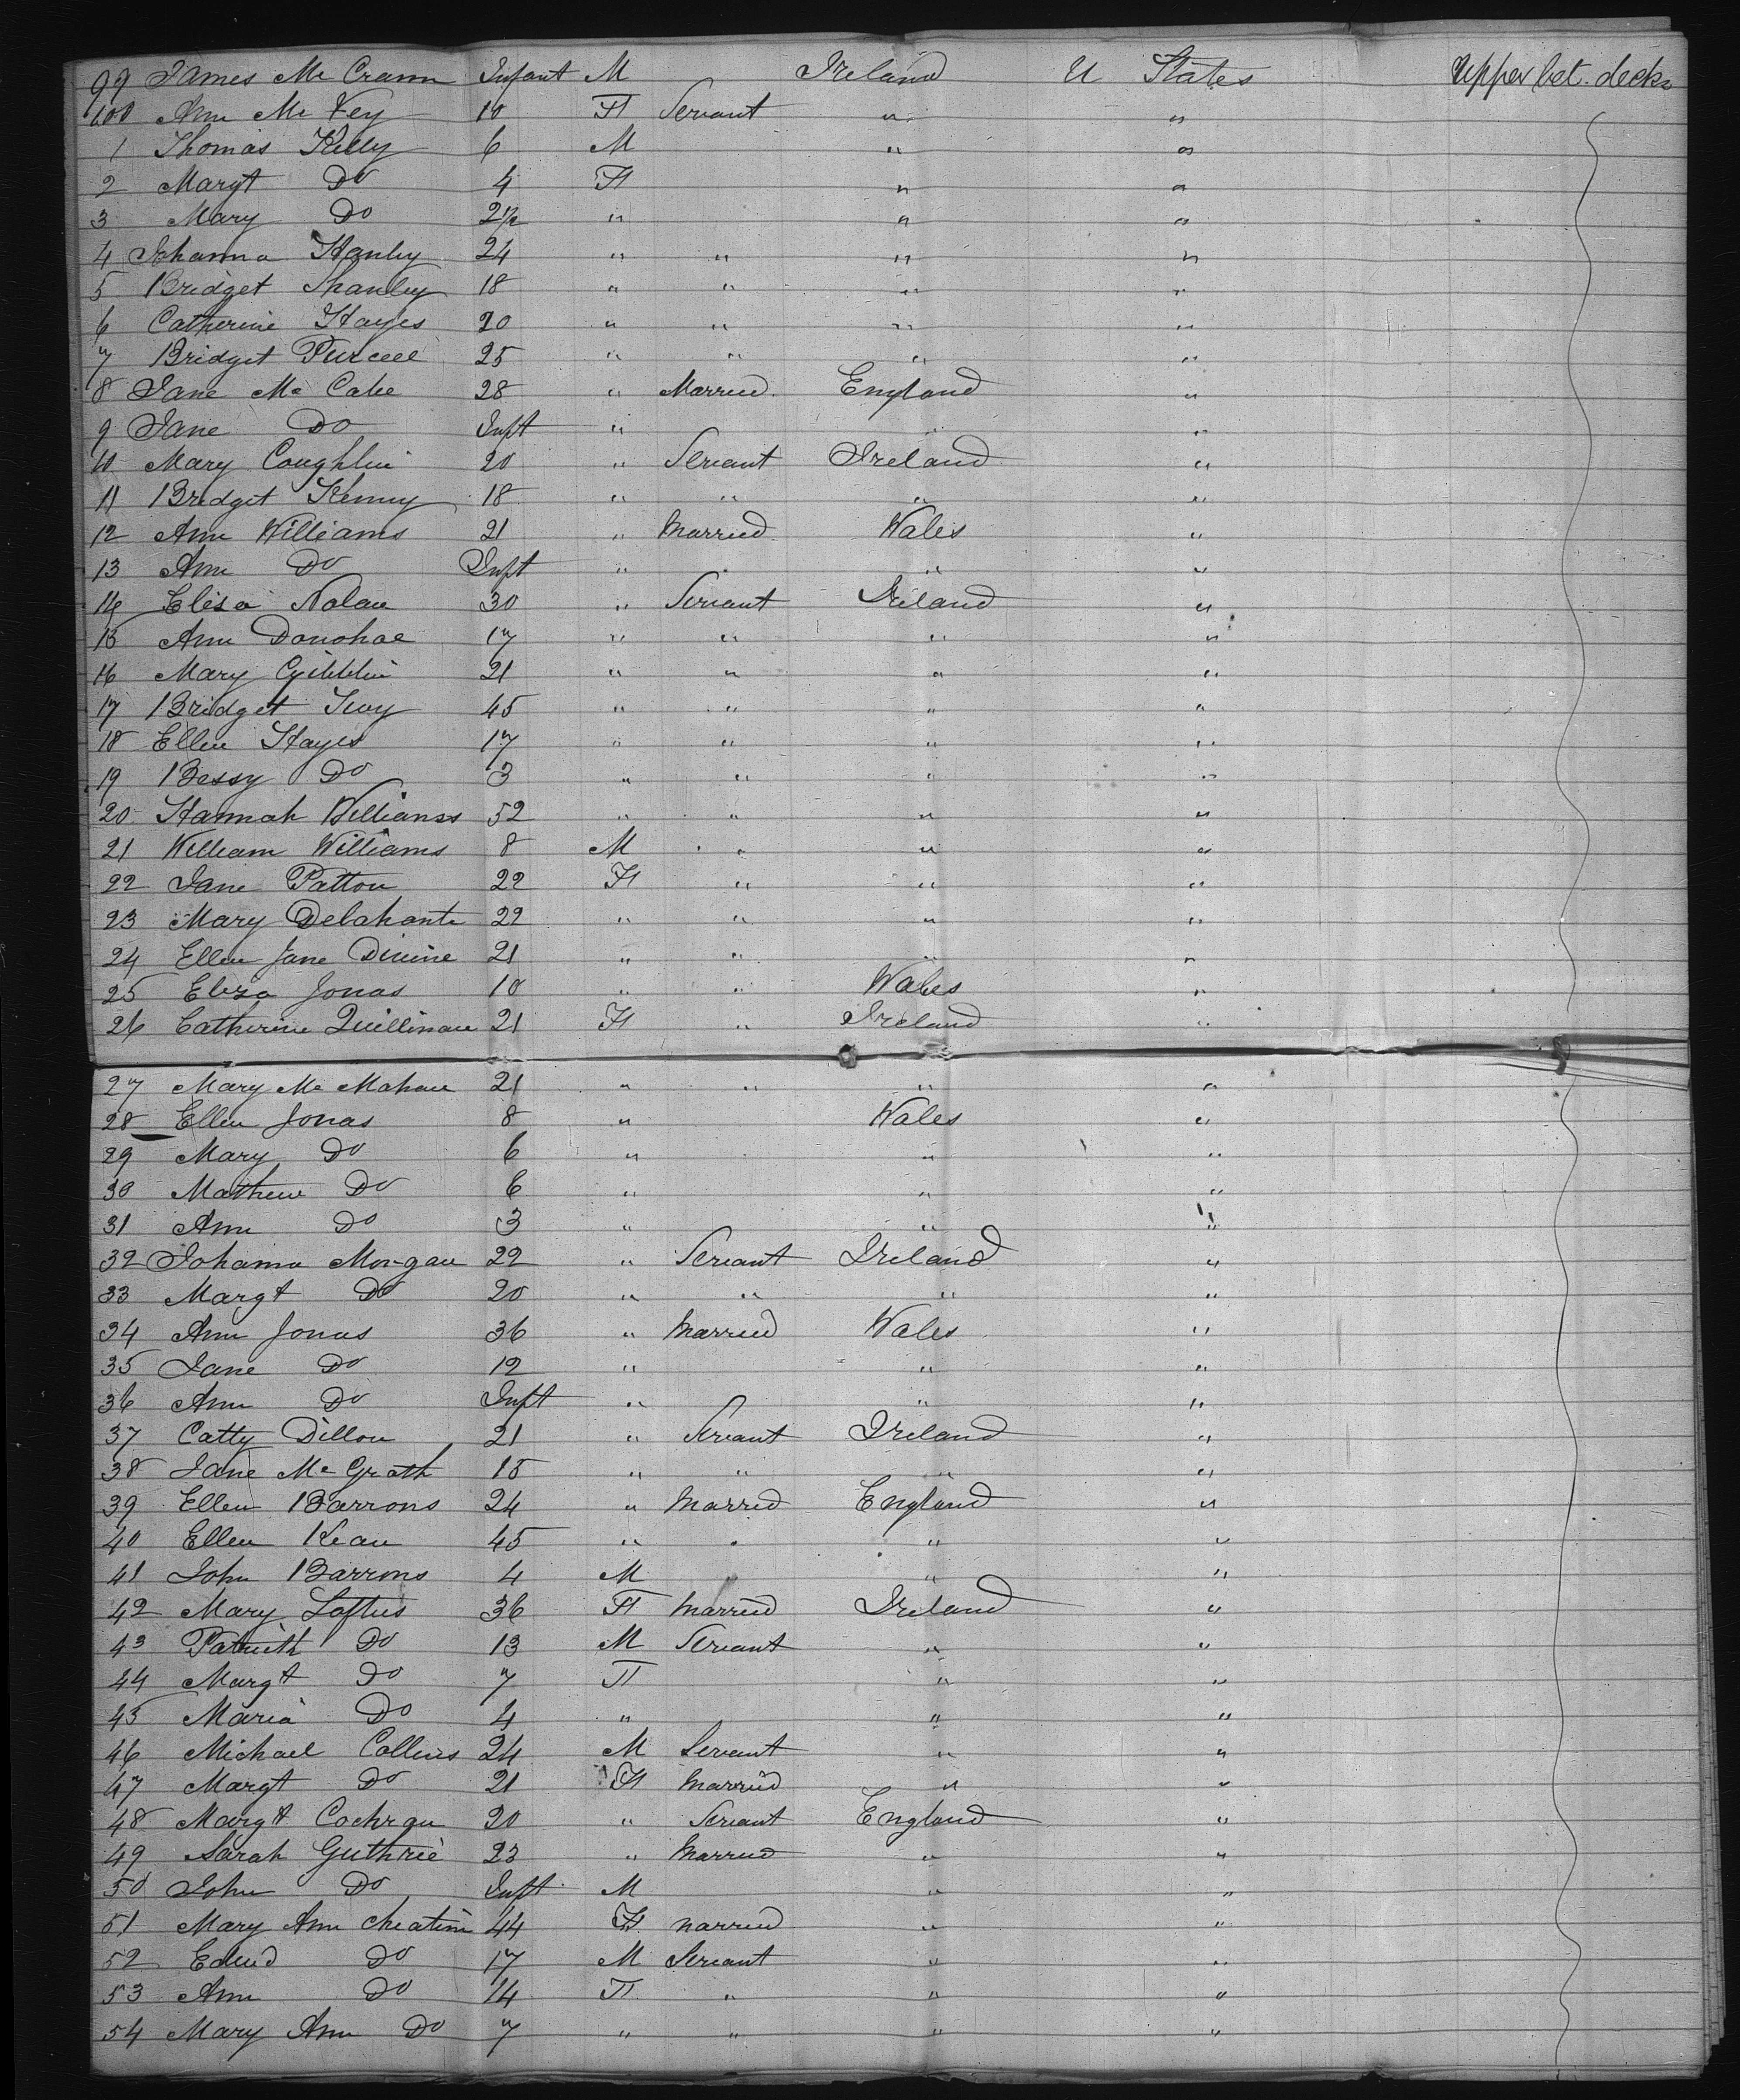 99 James Mc Crann Infant M Ireland U States Upper bet. decks
100 Ann Mc Vey 10 F Servant " "
1 Thomas Kelly 6 M " "
2 Margt Do 4 F " "
3 Mary Do 2 1/2 " " "
4 Johanna Hanley 24 " " " "
5 Bridget Shanley 18 " " " "
6 Catherine Hayes 20 " " " "
7 Bridget Purcell 25 " " " "
8 Jane Mc Cabe 28 " Married England "
9 Jane Do Inft " " "
10 Mary Coughlin 20 " Servant Ireland "
11 Bridget Kenny 18 " " " "
12 Ann Williams 21 " Married Wales "
13 Ann Do Inft " " "
14 Elisa Nolan 30 " Servant Ireland "
15 Ann Donohoe 17 " " " "
16 Mary Gibblin 21 " " " "
17 Bridget 45 " " " "
18 Ellen Hayes 17 " " " "
19 Bessy Do 3 " " " "
20 Hannah Williams 52 " " " "
21 William Williams 8 M " " "
22 Jane Patton 22 F " " "
23 Mary Delahante 22 " " " "
24 Ellen Jane Divine 21 " " " "
25 Eliza Jonas 10 " " Wales "
26 Catherine Quillinan 21 F " Ireland "
27 Mary Mc Mahan 21 " " " "
28 Ellen Jonas 8 " Wales "
29 Mary Do 6 " " "
30 Mathew Do 6 " " "
31 Ann Do 3 " " "
32 Johanna Morgan 22 " Servant Ireland "
33 Margt Do 20 " " " "
34 Ann Jonas 36 " Married Wales "
35 Jane Do 12 " " "
36 Ann Do Inft " " "
37 Catty Dillon 21 " Servant Ireland "
38 Jane Mc Grath 15 " " " "
39 Ellen Barrons 24 " Marred England "
40 Ellen Kean 45 " " " "
41 John Barrons 4 M " "
42 Mary Loftus 36 F Married Ireland "
43 Do 13 M Servant " "
44 Margt Do 7 F " "
45 Maria Do 4 " " "
46 Michael Collins 24 M Servant " "
47 Margt Do 21 F Married " "
48 Margt Cochran 20 " Servant England "
49 Sarah Guthrie 23 " Married " "
50 John Do Inft M " "
51 Mary Ann 44 F narried " "
52 Do 17 M Servant " "
53 Ann Do 14 F " " "
54 Mary Ann Do 7 " " " "